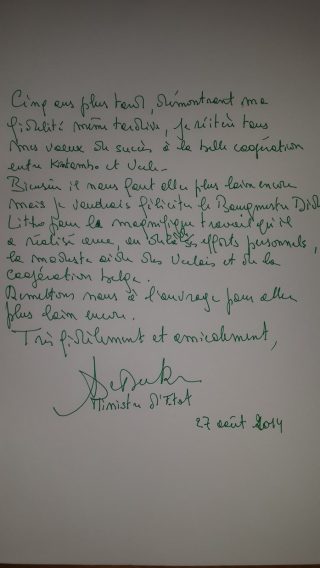 Cinq ans plus tard, démontrant ma
fidélité même tardive, je réitère tous
mes voeux de succès à la belle coopération
entre et Uccle.
Bien sûr il nous faut aller plus loin encore
mais je voudrais féliciter le Bourgmestre Didi
Litho pour le magnifique travail qu'il
a réalisé avec, au delà de efforts personnels,
la modeste aide des Ucclois et de la
coopération belge.
Remettons nous à l'ouvrage pour aller
plus loin encore.
Très fidèlement et amicalement,
Ministre d'Etat
27 août 2014